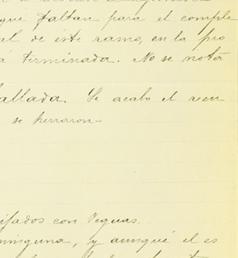 que faltan para el comple
al de este ramo, en la pro
á terminada. No se nota
allada. Se acabó el recu
se herraron
ados con Yeguas.
ninguna, y aunque el es